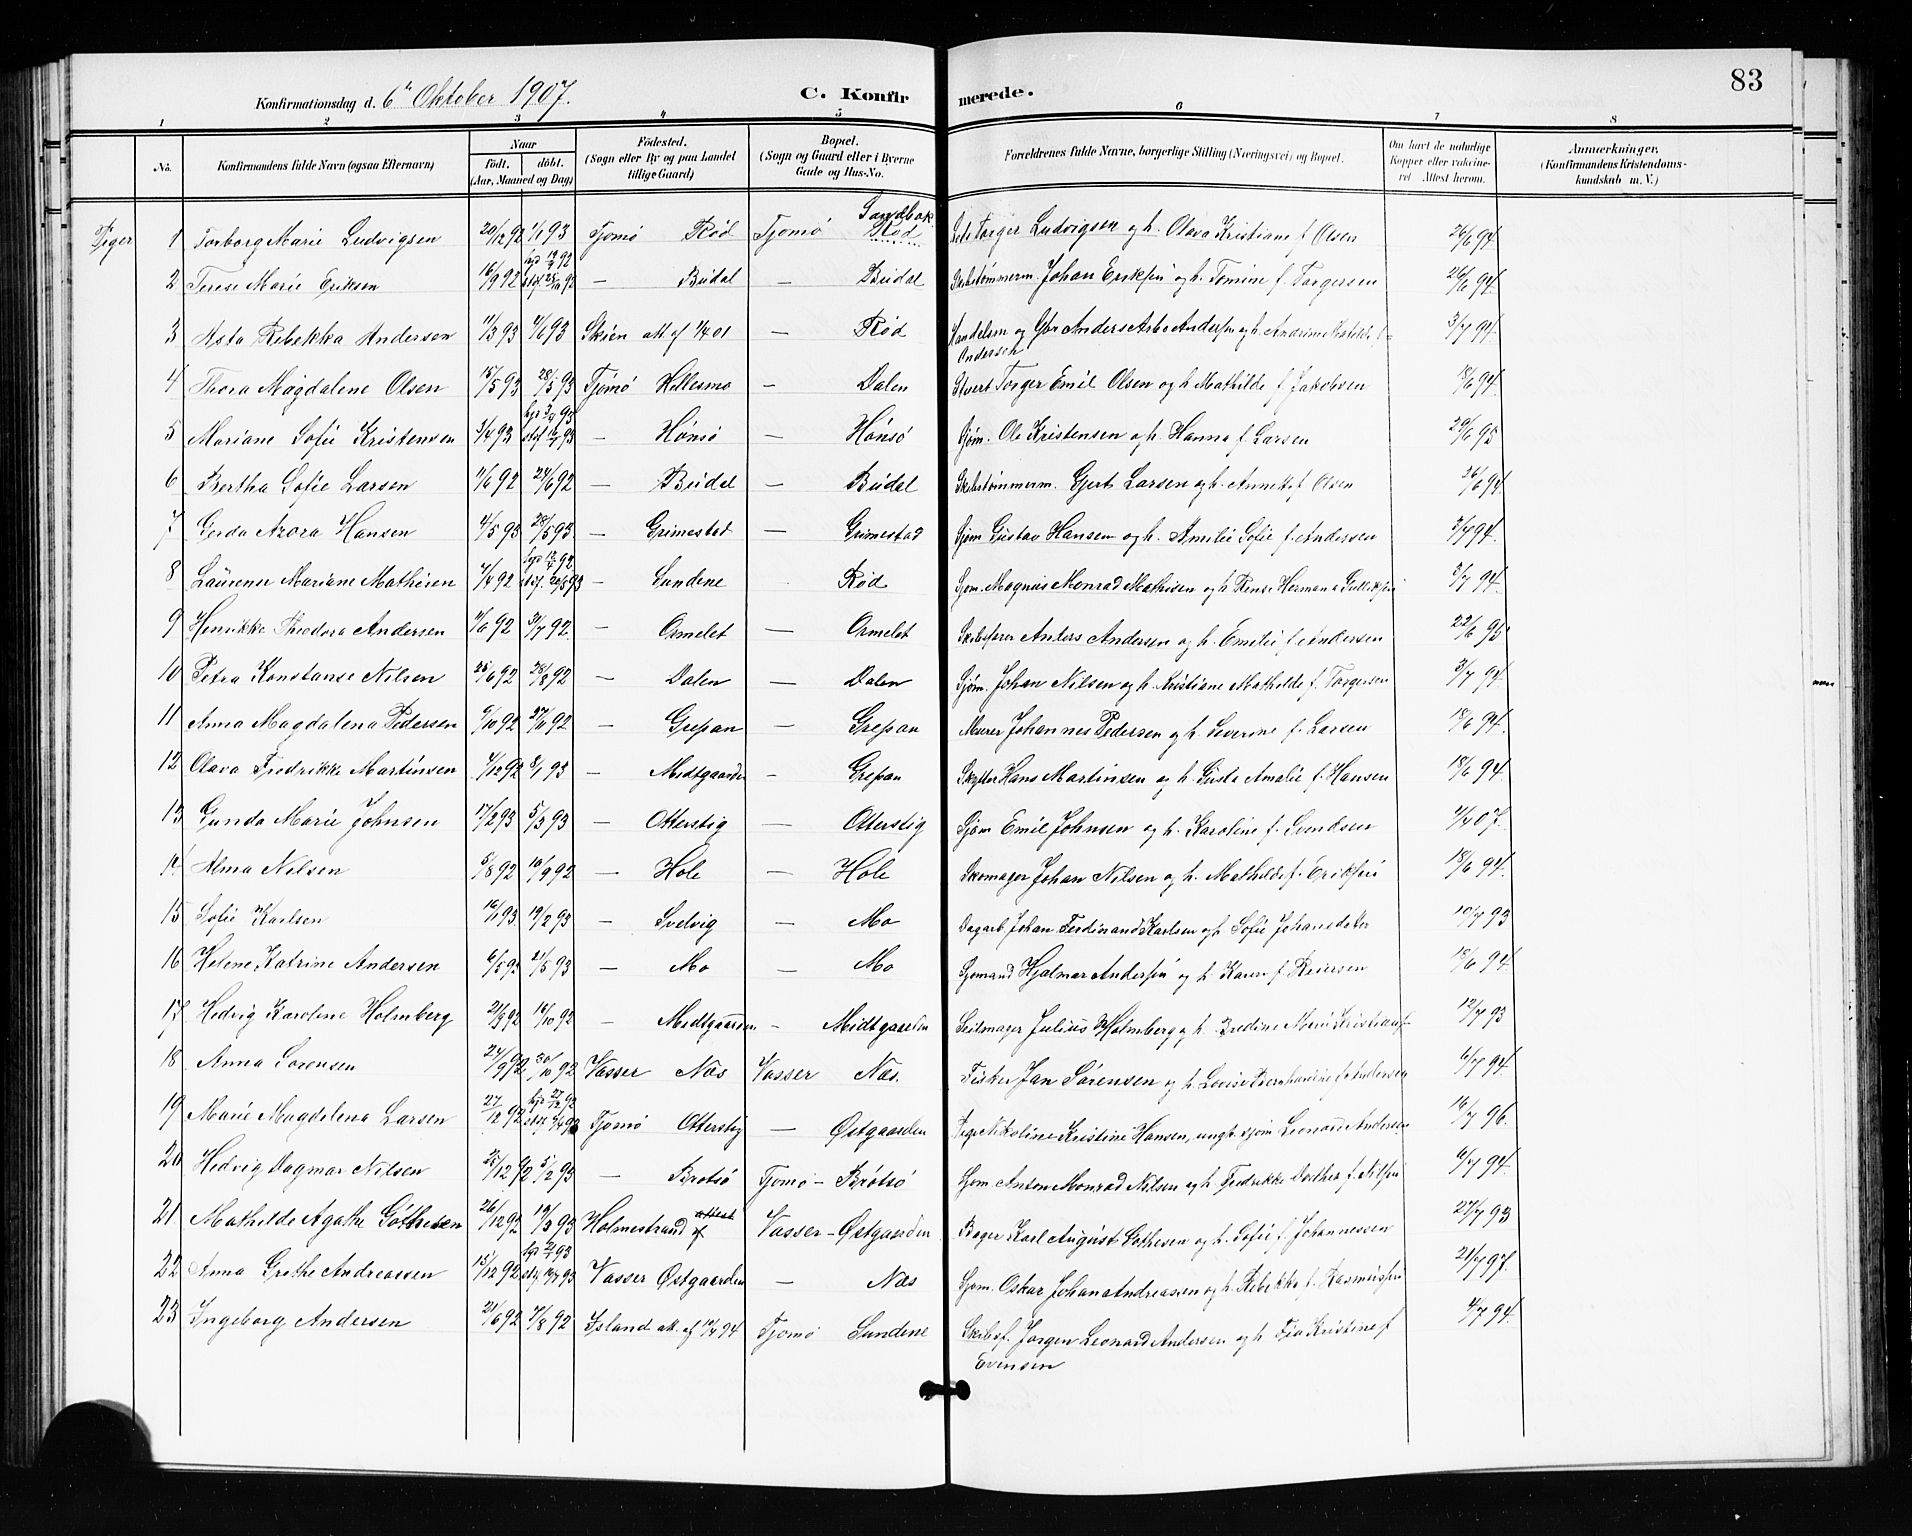 83
Konfirmationsdag d. 6te Oktober 1907.
C. Konfirmerede.
1 2 3 4 5 6 7 8
No. Konfirmandens fulde Navn (ogsaa Efternavn) Naar født. døbt. (Aar, Maaned og Dag) Fødested. (Sogn eller By og paa Landet tillige Gaard) Bopæl. (Sogn og Gaard eller i Byerne Gade og Hus-No. Forældrenes fulde Navne, borgerlige Stilling (Næringsvei) og Bopæl. Om havt de naturlige Kopper eller vaccineret Attest herom. Anmærkninger. (Konfirmandens Kristendomskundskab m. V.)
Piger 1 Torborg Marie Ludvigsen 20/12 92 1/1 93 Tjømø Rød Tjømø Sandbæk Rød Torger Ludvigsen og h. Olava Kristiane f. Olsen 26/6 94.
2 Terese Marie Eriksen 16/9 92 – Budal – Budal Skibstømmerm. Johan Eriksen og h. Tomine f. Torgersen 26/6 94.
3 Asta Rebekka Andersen 11/3 93 4/6 93 Skien att. af 1/4 01 – Rød Handelsm og Gbr Anders Andersen og h. Andersen 3/7 94.
4 Thora Magdalene Olsen 15/5 93 28/5 93 Tjømø Hillesmo – Dalen Stuert Torger Emil Olsen og h Mathilde f Jakobsen 18/6 94
5 Mariane Sofie Kristensen 3/4 93 – Hønsø – Hønsø Sjøm. Ole Kristensen og h. Hanna f. Larsen 29/6 95
6 Bertha Sofie Larsen 11/6 92 24/6 92 – Budal – Budal Skibstømmerm. Gjert Larsen og h. Annette f Olsen 26/6 94
7 Gerda Azora Hansen 4/5 93 28/5 93 – Grimestad – Grimestad Sjøm Gustav Hansen og h. Amelie Sofie f. Andersen 3/7 94.
8 Laurense Mariane Mathisen 4/4 92 – Sundene Rød Sjøm. Magnus Monrad Mathisen og h Rense Hermana Gulliksen 3/7 94.
9 Henrikke Theodora Andersen 11/6 92 31/7 92 – Ormelet – Ormelet Skibsfører Anders Andersen og h. Emilie f. Andersen 22/6 95
10 Petra Konstanse Nilsen 25/6 92 28/8 92 – Dalen – Dalen Sjøm. Johan Nilsen og h. Kristiane Mathilde f. Torgersen 3/7 94.
11 Anna Magdalena Pedersen 9/10 92 27/11 92 – Grepan – Grepan Murer Johannes Pedersen og h. Severine f. Larsen 18/6 94.
12 Olava Fredrikke Martinsen 4/12 92 8/1 93 – Midtgaarden – Grepan Skytter Hans Martinsen og h. Gusta Amalie f. Hansen 18/6 94
13 Gunda Marie Johnsen 17/2 93 5/3 93 – Otterstig – Otterstig Sjøm Emil Johnsen og h. Karoline f. Svendsen 4/4 07.
14 Alma Nilsen 5/8 92 10/9 92 – Hole – Hole Skomager Johan Nilsen og h. Mathilde f. Eriksen 18/6 94.
15 Sofie Karlsen 16/1 93 19/2 93 – Svelvig – Mo Dagarb. Johan Ferdinand Karlsen og h Sofie Johansdatter 10/7 93
16 Helene Katrine Andersen 6/5 93 21/5 93 – Mo – Mo Sjømand Hjalmar Andersen og h Karen f. Reiersen 18/6 94
17 Hedvig Karoline Holmberg 21/9 92 16/10 92 – Midtgaarden – Midtgaarden Seilmager Julius Holmberg og h. Bredine Marie Kristiansen 12/7 93
18 Anna Sørensen 24/9 92 30/10 92 Vasser Næs Vasser Næs. Fisker Jan Sørensen og h. Lovise Bernhardine f Andersen 6/7 94.
19 Marie Magdalena Larsen 27/12 92 Tjømø Otterstig – Østgaarden Pige Nikoline Kristine Hansen, ungk. sjøm Leonard Andersen 16/7 96.
20 Hedvig Dagmar Nilsen 25/12 92 5/2 93 – Brøtsø Tjømø – Brøtsø Sjøm. Anton Monrad Nilsen og h Fredrikke Dorthea f. Nilsen 6/7 94.
21 Mathilde Agathe Göthesen 26/12 92 19/3 93 Holmestrand attest af Vasser – Østgaarden Bager Karl August Gøthesen og h. Sofie f. Johannessen 27/7 93
22 Anna Grethe Andreassen 15/12 92 Vasser Østgaarden – Næs Sjøm. Oskar Johan Andreassen og h. Rebekka f. Rasmusen 21/7 97.
23 Ingeborg Andersen 21/6 92 7/8 92 Island att. af 10/7 94 Tjømø Sundene Skibsf. Jørgen Leonard Andersen og h Kristine f 4/7 94.
Evensen